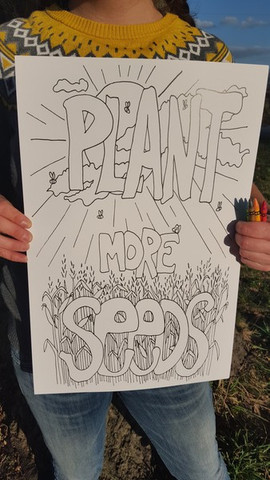 PLANT
MORE
SEEDS